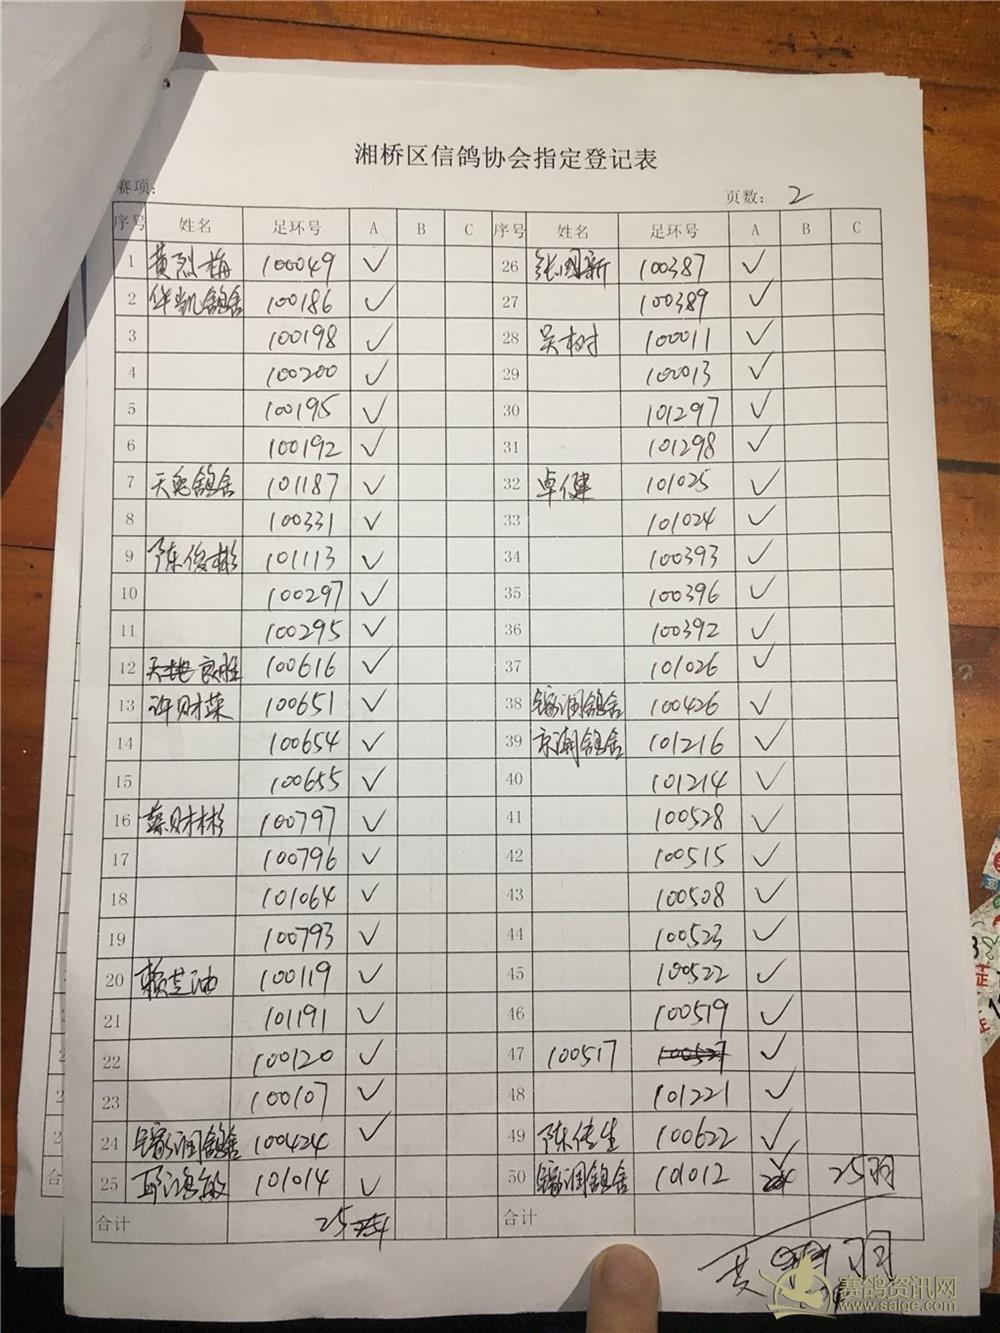 湘桥区信鸽协会指定登记表
赛项:
页数: 2
序号 姓名 足环号 A B C 序号 姓名 足环号 A B C
1 黄烈梅 100049 ✓ 26 张国新 100387 ✓
2 华凯鸽舍 100186 ✓ 27 100389 ✓
3 100198 ✓ 28 吴树 100011 ✓
4 100200 ✓ 29 100013 ✓
5 100195 ✓ 30 101297 ✓
6 100192 ✓ 31 101298 ✓
7 鸽舍 101187 ✓ 32 卓健 101025 ✓
8 100331 ✓ 33 101024 ✓
9 陈俊彬 101113 ✓ 34 100393 ✓
10 100297 ✓ 35 100396 ✓
11 100295 ✓ 36 100392 ✓
12 100616 ✓ 37 101026 ✓
13 许财荣 100651 ✓ 38 润鸽舍 100426 ✓
14 100654 ✓ 39 京潮鸽舍 101216 ✓
15 100655 ✓ 40 101214 ✓
16 蔡财彬 100797 ✓ 41 100528 ✓
17 100796 ✓ 42 100515 ✓
18 101064 ✓ 43 100508 ✓
19 100793 ✓ 44 100523 ✓
20 赖芝油 100119 ✓ 45 100522 ✓
21 101191 ✓ 46 100519 ✓
22 100120 ✓ 47 100517 ✓
23 100107 ✓ 48 101221 ✓
24 润鸽舍 100424 ✓ 49 陈传生 100622 ✓
25 邱海敏 101014 ✓ 50 润鸽舍 101012 ✓ 25羽
合计 25 合计
共 羽
赛鸽资讯网
www.saige.com